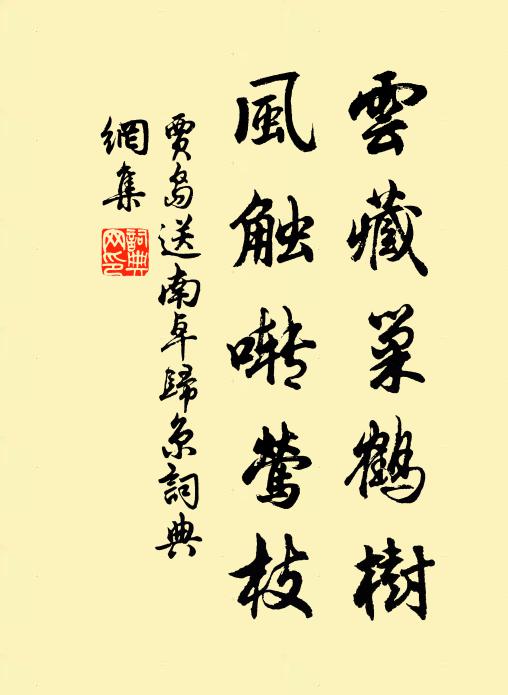 雲藏巢鶴樹
風触啭莺枝
賈島送南卓歸京詞典
網集
詞典
网印